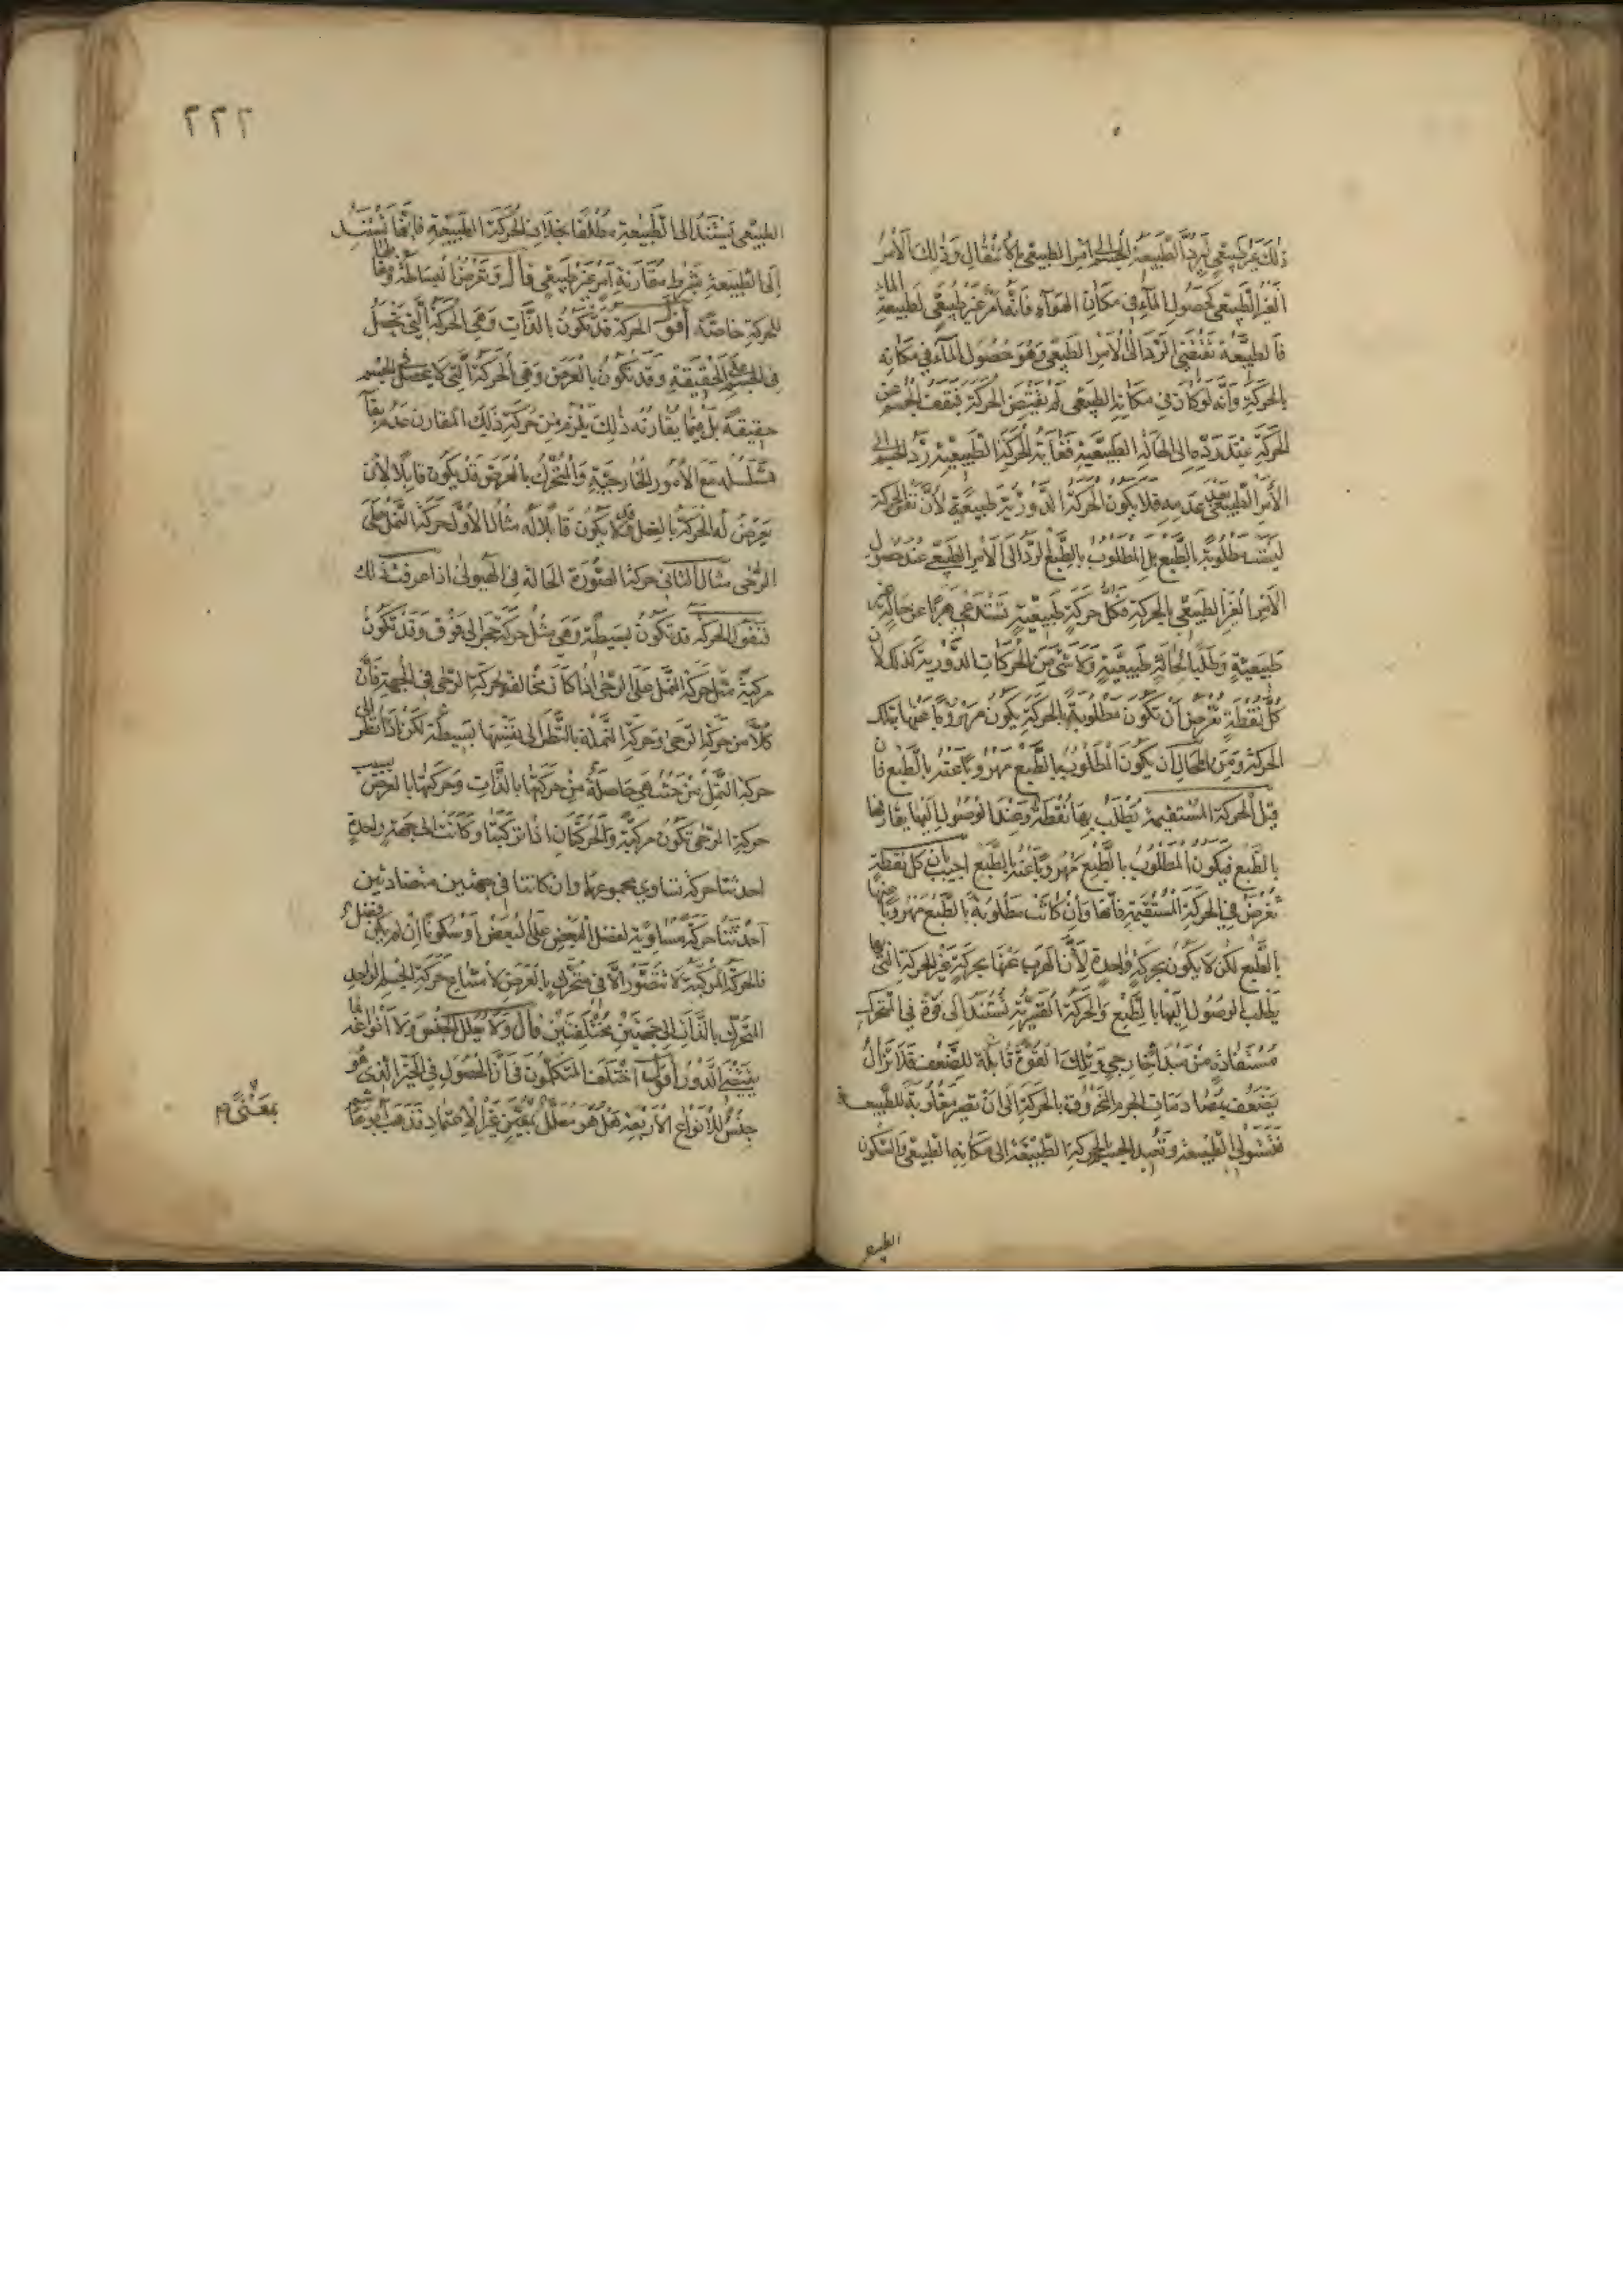 ذلك غير طبيعي ليرد الطبيعة الجسم إلى الأمر الطبيعي بالانتقال وذلك الأمر
الغير الطبيعي كحصول الماء في مكان الهواء فإنه أمر غير طبيعي لطبيعة الماء
فالطبيعة تقتضي الرد إلى الأمر الطبيعي وهو حصول الماء في مكانه
بالحركة وأنه لو كان في مكانه الطبيعي لم يقتض الحركة فيقف الجسم عن
الحركة عند رده إلى الحالة الطبيعية فغاية الحركة الطبيعية رد الجسم إلى
الأمر الطبيعي بعد عدمه فلا يكون الحركة الدورية طبيعية لأن نفس الحركة
ليست مطلوبة بالطبع بل المطلوب بالطبع الرد إلى الأمر الطبيعي عند حصول
الأمر الغير الطبيعي بالحركة فكل حركة طبيعية تستدعي هربا عن حالة غير
طبيعية وطلبا لحالة طبيعية ولا شيء من الحركات الدورية كذلك لأن
كل نقطة تفرض أن تكون مطلوبة بالحركة يكون مهروبا عنها بتلك
الحركة ومن المحال أن يكون المطلوب بالطبع مهروبا عنه بالطبع فان
قيل الحركة المستقيمة يطلب بها نقطة وعند الوصول إليها يفارقها
بالطبع فيكون المطلوب بالطبع مهروبا عنه بالطبع اجيب بان كل نقطة
تفرض في الحركة المستقيمة فإنها وإن كانت مطلوبة بالطبع مهروبا عنها
بالطبع لكن لا يكون بحركة واحدة لأن الهرب عنها بحركة غير الحركة التي بها
يطلب الوصول إليها بالطبع والحركة القسرية تستند إلى قوة في المتحرك
مستفادة من مبدأ خارجي وتلك القوة قابلة للضعف فلا تزال
يضعف بمصادمات الجرم المخروق بالحركة إلى أن تصير مغلوبة للطبيعة
فتستولي الطبيعة وتعيد الجسم بالحركة الطبيعة إلى مكانه الطبيعي والسكون
الطبيعي
٢٢٢
الطبيعي يستند إلى الطبيعة مطلقا بخلاف الحركة الطبيعية فإنها تستند
إلى الطبيعة بشرط مقارنة أمر غير طبيعي قال وتعرض البساطة ومقابلها
للحركة خاصة أقول الحركة قد تكون بالذات وهي الحركة التي تحصل
في الجسم على الحقيقة وقد تكون بالعرض وهي الحركة التي لا يحصل في الجسم
حقيقة بل فيما يقارنه ذلك يلزم من حركة ذلك المقارن عدم بقاء
مع الأمور الخارجية والمتحرك بالعرض قد يكون قابلا لأن
يعرض له الحركة بالفعل وقد لا يكون قابلا له مثال الأول حركة النمل على
الرحى مثال الثاني حركة الصورة الحالة في الهيولى اذا عرفت ذلك
فنقول الحركة قد تكون بسيطة وهي مثل حركة حجر إلى فوق وقد تكون
مركبة مثل حركة النمل على الرحى إذا كانت مخالفة لحركة الرحى في الجهة فإن
كلا من حركة الرحى وحركة النملة بالنظر إلى نفسها بسيطة لكن إذا نظر إلى
حركة النمل من حيث هي حاصلة من حركتها بالذات وحركتها بالعرض بسبب
حركة الرحى تكون مركبة والحركتان إذا تركبتا وكانتا إلى جهة واحدة
احدثتا حركة تساوي مجموعهما وان كانتا في جهتين متضادتين
أحدثتا حركة مساوية لفضل البعض على البعض أو سكونا إن لم يكن فضل
فالحركة المركبة لا تتصور إلا في متحرك بالعرض لامتناع حركة الجسم الواحد
المتحرك بالذات إلى جهتين مختلفتين قال ولا يعلل الجنس ولا أنواعه بما
يقتضي الدور أقول اختلف المتكلمون في أن الحصول في الحيز الذي هو
جنس للأنواع الأربعة هل هو معلل بمعنى غير الاعتماد فذهب أبو هاشم
بمعنى